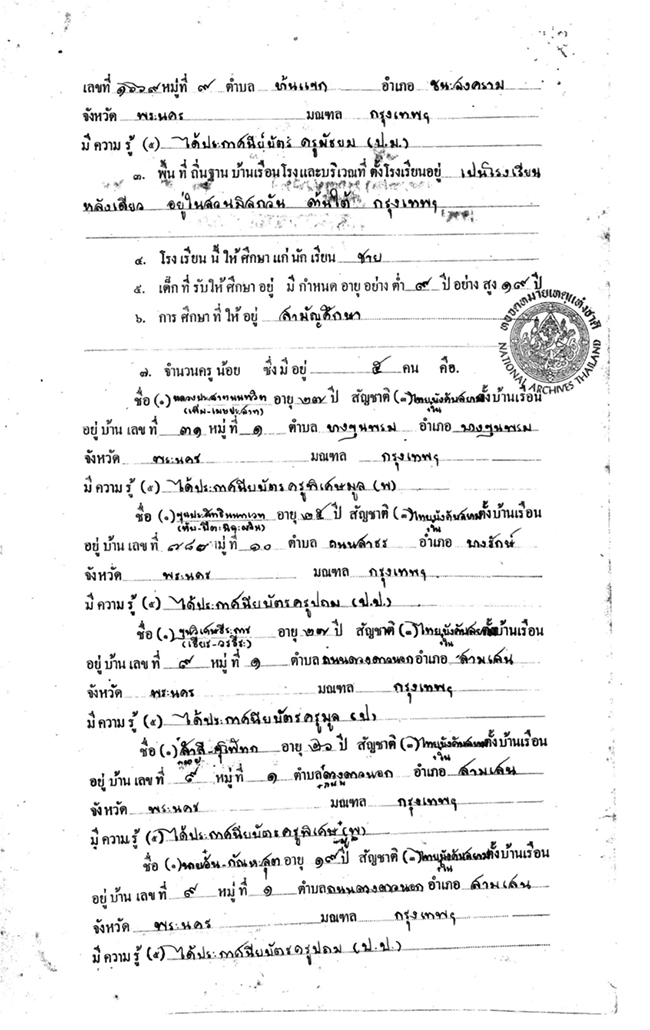 เลขที่ ๑๖๖๙ หมู่ที่ ๙ ตำบล อำเภอ ชนะสงคราม
จังหวัด พระนคร มณฑล กรุงเทพฯ
มีความรู้ (๕) ได้ประกาศนีย์บัตร์ ครูมัธยม (ป.ม.)
๓. พื้นที่ถิ่นฐานบ้านเรือนโรงและบริเวณที่ตั้งโรงเรียนอยู่ เปนโรงเรียน
หลังเดียว อยู่ในสวนมิสกวัน ด้านใต้ กรุงเทพฯ
๔. โรงเรียนนี้ให้ศึกษาแก่นักเรียน ชาย
๕. เด็กที่รับให้ศึกษาอยู่ มีกำหนดอายุอย่างต่ำ ๙ ปีอย่างสูง ๑๙ ปี
๖. การศึกษาที่ให้อยู่ สามัญศึกษา
หอจดหมายเหตุแห่งชาติ
NATIONAL ARCHIVES THAILAND
๗. จำนวนครูน้อย ซึ่งมีอยู่ ๕ คน คือ.
ชื่อ (๑) อายุ ๒๗ ปี สัญชาติ (๓) ไทยบังคับสยาม ตั้งบ้านเรือน
อยู่บ้านเลขที่ ๓๑ หมู่ที่ ๑ ตำบล บางขุนพรม อำเภอ บางขุนพรม
จังหวัด พระนคร มณฑล กรุงเทพฯ
มีความรู้ (๕) ได้ประกาศนียบัตรครูพิเศษมูล (พ)
ชื่อ (๑) อายุ ๒๕ ปี สัญชาติ (๓) ไทยบังคับสยาม ตั้งบ้านเรือน
อยู่บ้านเลขที่ ๗๘๗ หมู่ที่ ๑๐ ตำบล ถนนสาธร อำเภอ บางรักษ์
จังหวัด พระนคร มณฑล กรุงเทพฯ
มีความรู้ (๕) ได้ประกาศนียบัตรครูปถม (ป.ป.)
ชื่อ (๑) อายุ ๒๗ ปี สัญชาติ (๓) ไทยบังคับสยาม ตั้งบ้านเรือน
อยู่บ้านเลขที่ ๙ หมู่ที่ ๑ ตำบล ถนนดวงดาวนอก อำเภอ สามเสน
จังหวัด พระนคร มณฑล กรุงเทพฯ
มีความรู้ (๕) ได้ประกาศนียบัตรครูมูล (ป)
ชื่อ (๑) อายุ ๒๖ ปี สัญชาติ (๓) ไทยบังคับสยาม ตั้งบ้านเรือน
อยู่บ้านเลขที่ ๙ หมู่ที่ ๑ ตำบล ดวงดาวนอก อำเภอ สามเสน
จังหวัด พระนคร มณฑล กรุงเทพฯ
มีความรู้ (๕) ได้ประกาศนียบัตรครูพิเศษ (พ)
ชื่อ (๑) อายุ ๑๙ ปี สัญชาติ (๓) ไทยบังคับสยาม ตั้งบ้านเรือน
อยู่บ้านเลขที่ ๙ หมู่ที่ ๑ ตำบล ถนนดวงดาวนอก อำเภอ สามเสน
จังหวัด พระนคร มณฑล กรุงเทพฯ
มีความรู้ (๕) ได้ประกาศนียบัตรครูปถม (ป.ป.)